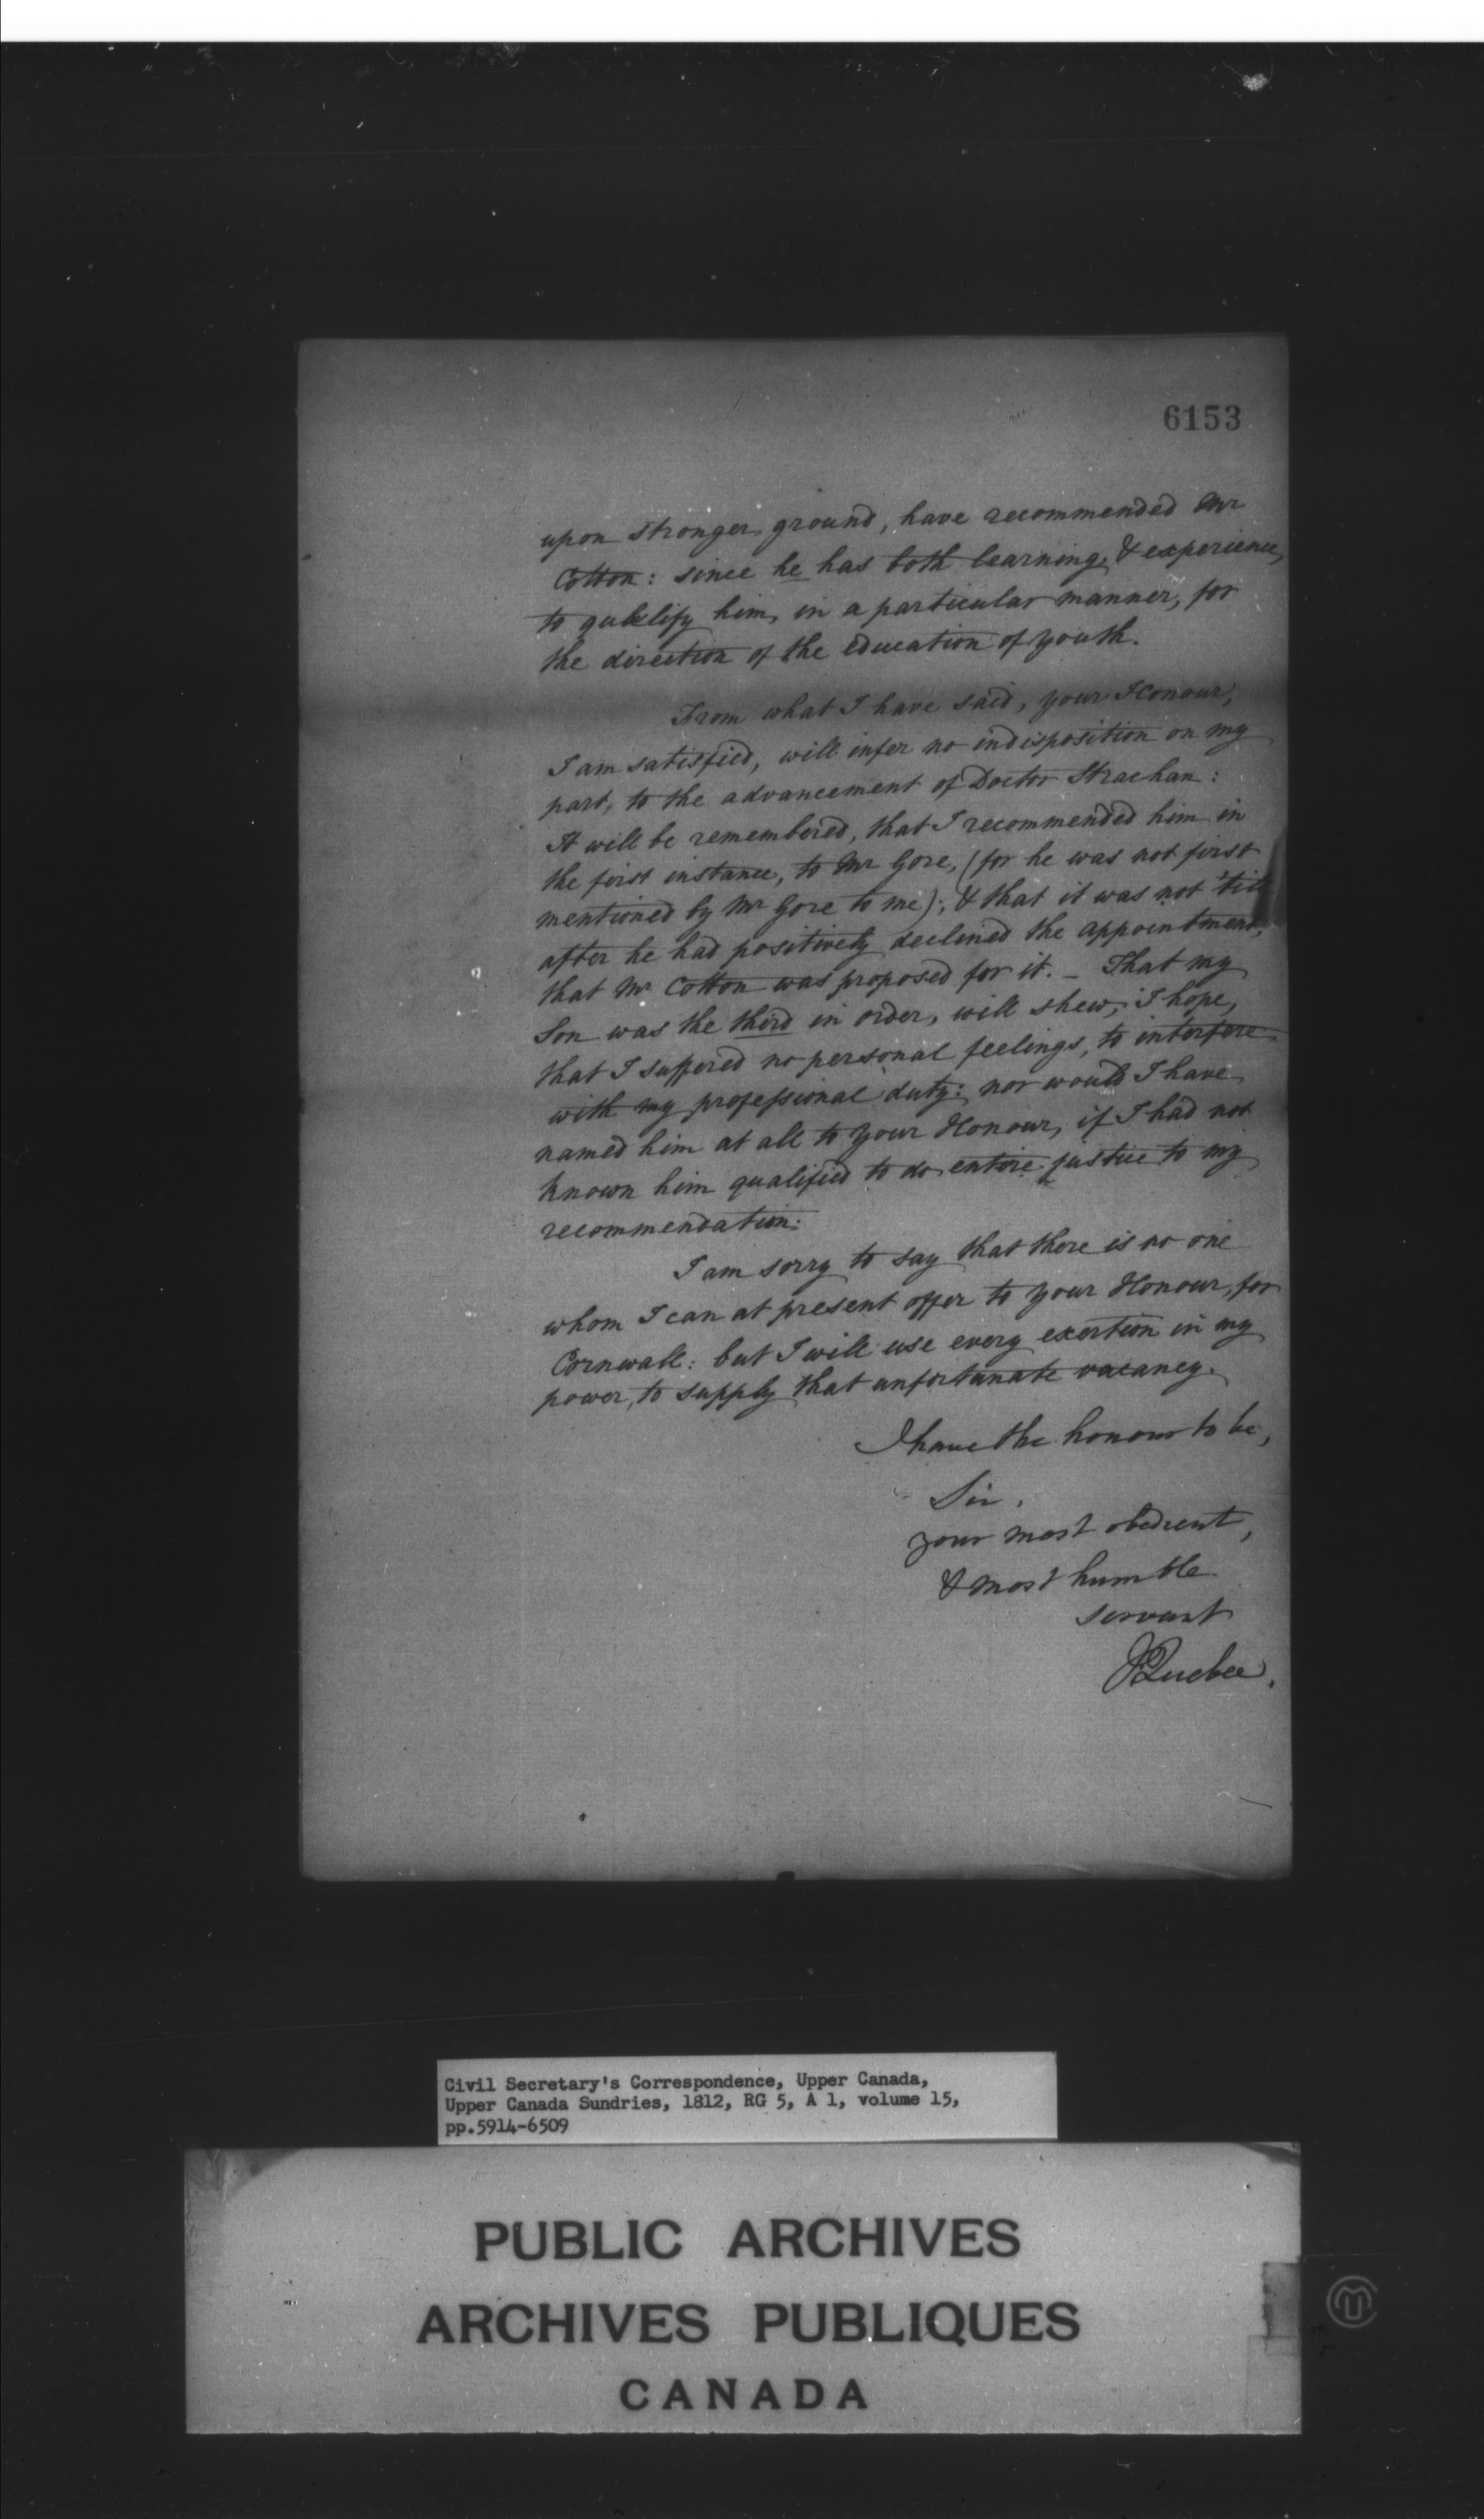 6153
upon stronger ground, have recommended Mr
Cotton: since he has both learning, & experience,
to qualify him, in a particular manner, for
the direction of the education of youth.
From what I have said, your Honour,
I am satisfied, will infer no indisposition on my
part, to the advancement of Doctor Strachan:
It will be remembered, that I recommended him in
the first instance, to Mr Gore, (for he was not first
mentioned by Mr Gore to me); & that it was not 'till
after he had positively declined the appointment,
that Mr Cotton was proposed for it. - That my
Son was the third in order, will shew, I hope,
that I suffered no personal feelings, to interfere
with my professional duty: nor would I have
named him at all to Your Honour, if I had not
known him qualified to do entire justice to my
recommendation:
I am sorry to say that there is no one
whom I can at present offer to Your Honour, for
Cornwall: but I will use every exertion in my
power, to supply that unfortunate vacancy.
I have the honour to be,
Sir,
your most obedient,
& most humble
servant
J Quebec.
Civil Secretary's Correspondence, Upper Canada,
Upper Canada Sundries, 1812, RG 5, A 1, volume 15,
pp.5914-6509
PUBLIC ARCHIVES
ARCHIVES PUBLIQUES
CANADA